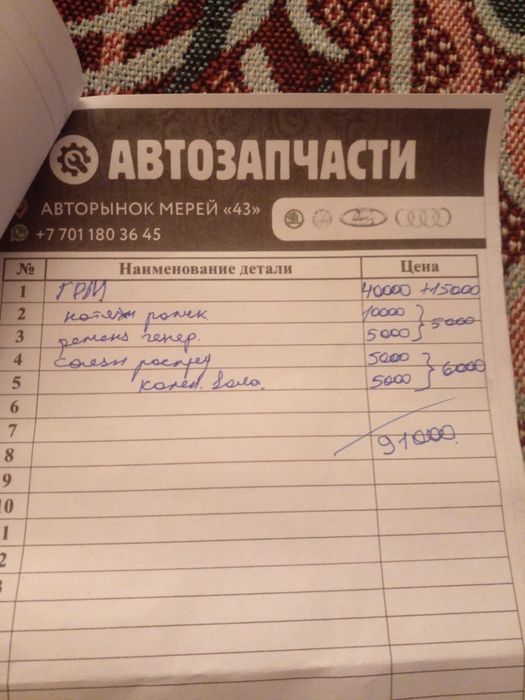 АВТОЗАПЧАСТИ
АВТОРЫНОК МЕРЕЙ «43»
+7 701 180 36 45
№ Наименование детали Цена
1 ГРМ 40000 +15000
2 натяж ролик 10000
3 ремень генер. 5000 } 5000
4 сальн распред 5000
5 колен. вала. 5000 } 6000
6
7
91000.
8
9
10
1
2
3